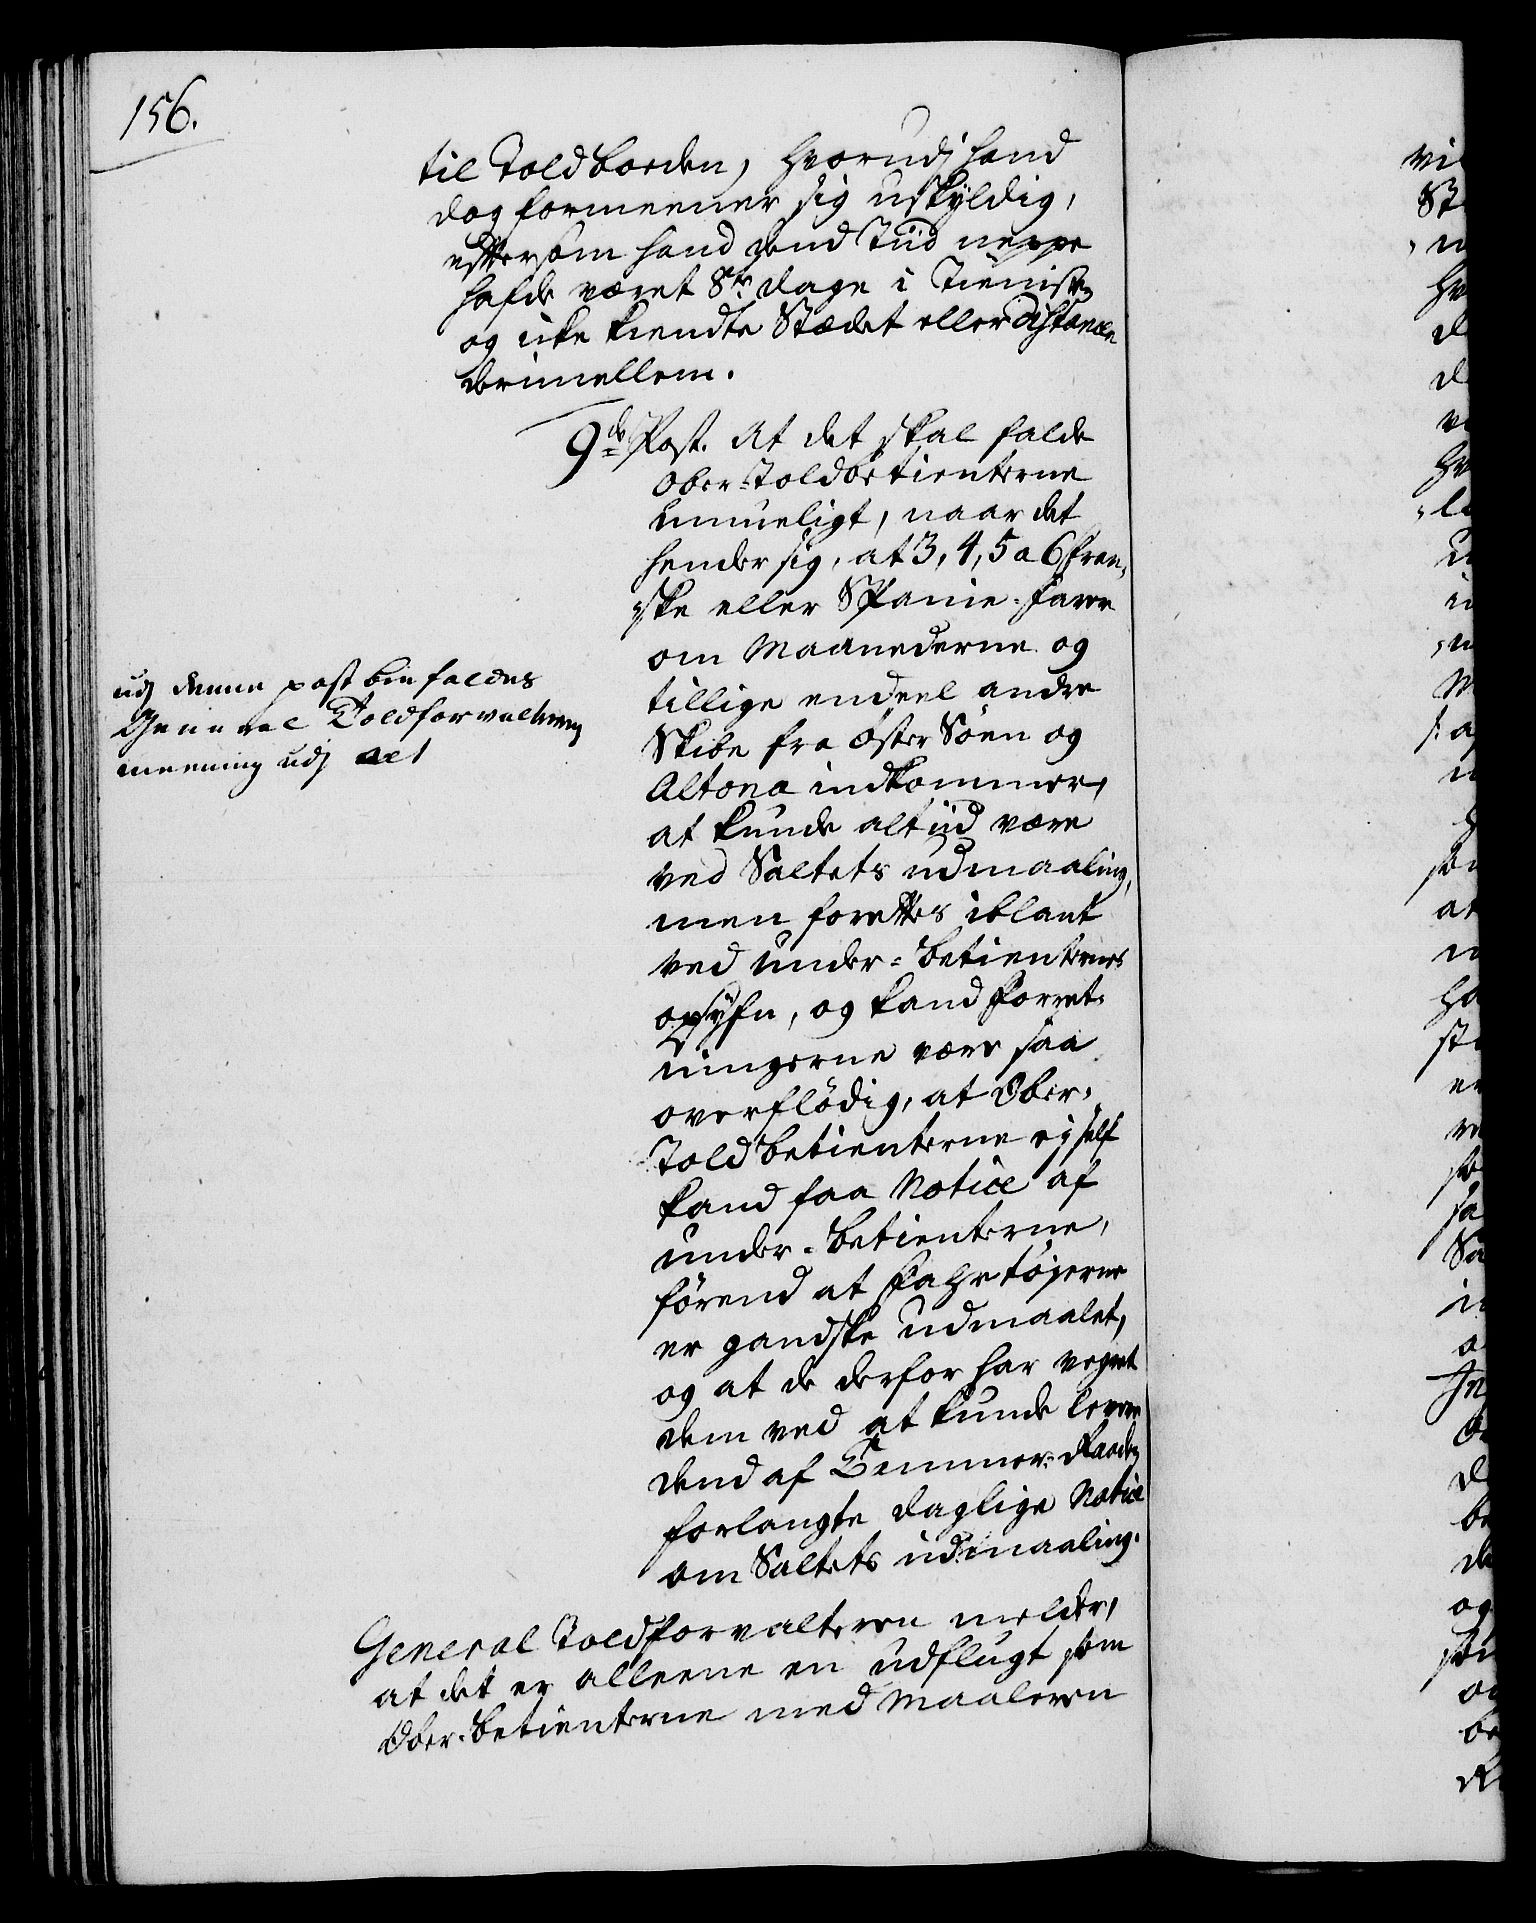 156.
til Toldboeden, hvorudj hand
dog formeener sig uskyldig,
eftersom hand dend Tiid neppe
hafde været 8te dage i Tienisten
og icke kiendte Stædet eller distancen
derimellem.
9de Post. At det skal falde
Ober-Toldbetienterne
umueligt, naar det
hender sig, at 3, 4, 5 a 6 fran-
ske eller Spanie-farere
om Maanederne og
tillige endeel andre
Skibe fra Øster Søen og
Altona indkommer,
at kunde altiid være
ved Saltets udmaaling,
men forrettes iblant
ved under-betienternes
opsyn, og kand forret-
ningerne være saa
overflødig, at Ober-
Toldbetienterne ej self
kand faa Notice af
under-betienterne,
førend at fahrtøjerne
er gandske udmaalet,
og at de derfor har vegret
dem ved at kunde levere
dend af Cammer-Raaden
forlangte daglige Notice
om Saltets udmaaling.
udj denne post biefaldes
General Toldforvalterens
meening udj alt
General Toldforvalteren melder,
at det er alleene en udflugt som
Ober-betienterne med Maaleren